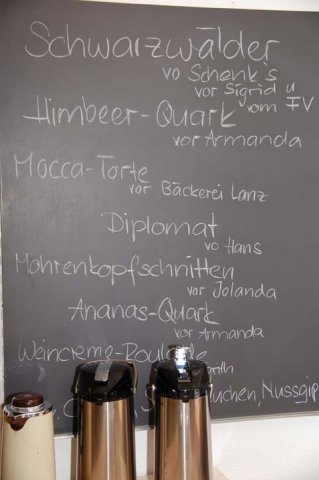 Schwarzwälder
vo Schenk's
vor Sigrid u
vom FV
Himbeer-Quark
vor Armanda
Mocca-Torte
vor Bäckerei Lanz
Diplomat
vo Hans
Mohrenkopfschnitten
vor Jolanda
Ananas-Quark
vor Armanda
Weincreme-Roulade